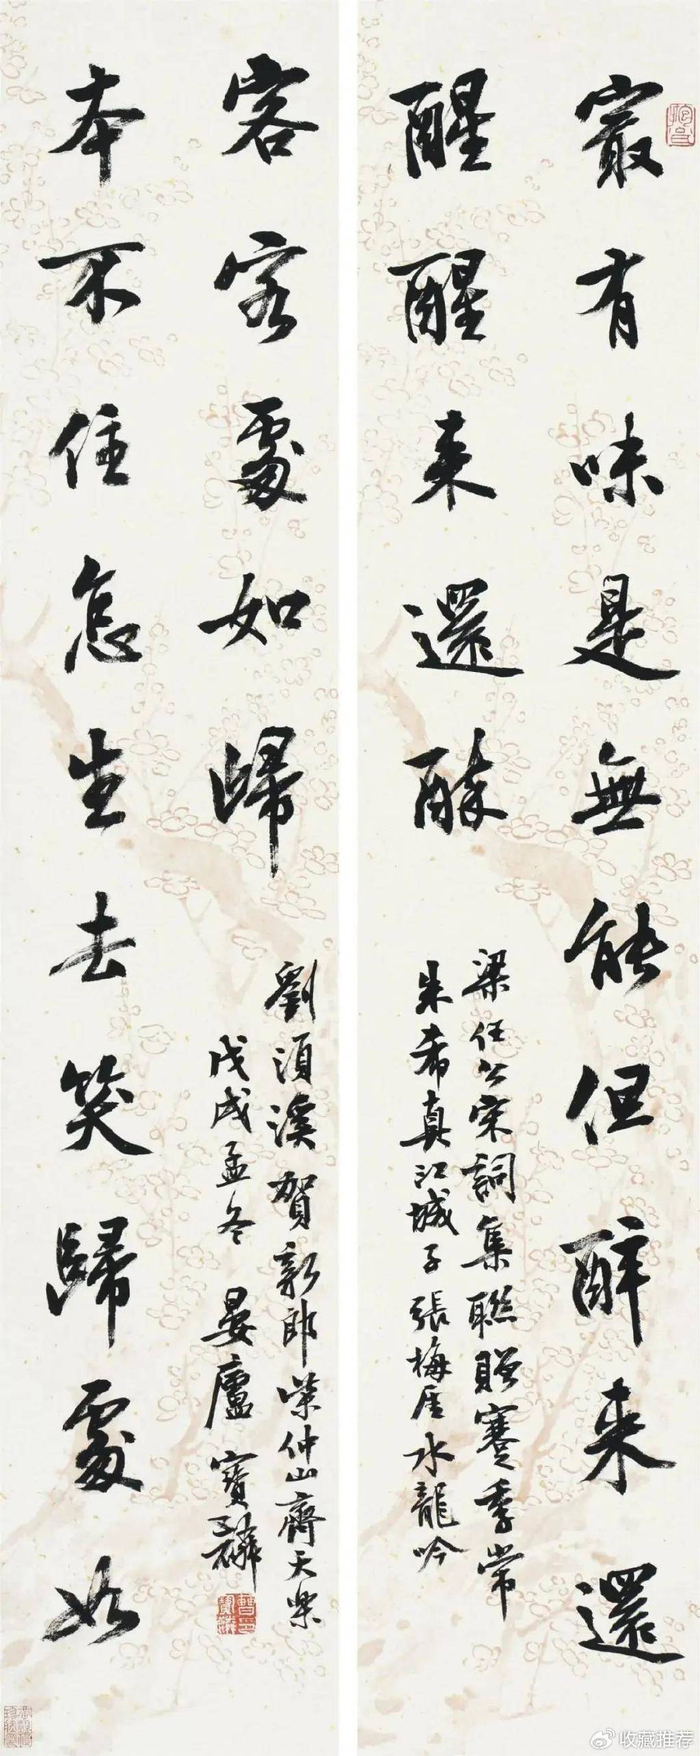 最有味是無能但醉来還
醒醒来還醉
梁任公宋詞集聯贈蹇季常
朱希真江城子張梅厓水龍吟
本不住怎生去笑歸處如
客客處如歸
劉須溪賀新郎柴仲山齊天樂
戊戌孟冬 晏廬寶麟
收藏推荐